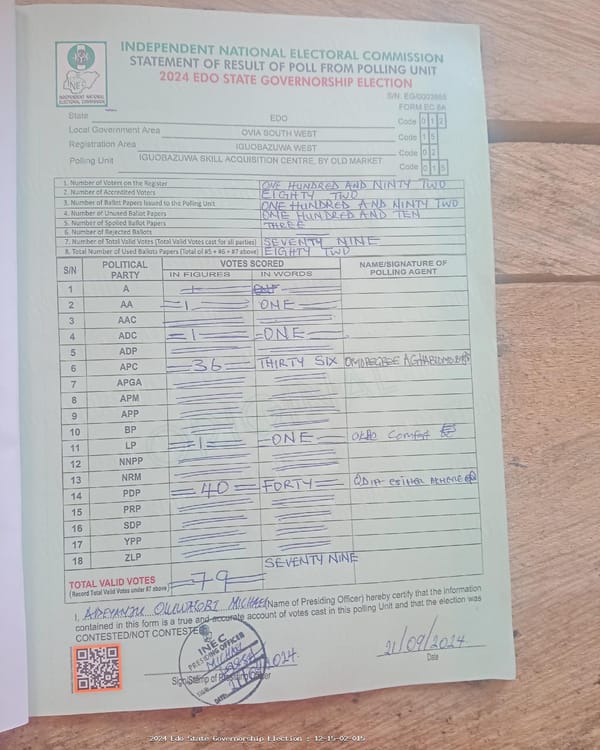 INDEPENDENT NATIONAL ELECTORAL COMMISSION
STATEMENT OF RESULT OF POLL FROM POLLING UNIT
2024 EDO STATE GOVERNORSHIP ELECTION
INEC
INDEPENDENT NATIONAL ELECTORAL COMMISSION
FORM EC 8A
State EDO Code 0 1 2
Local Government Area OVIA SOUTH WEST Code 1 5
Registration Area IGUOBAZUWA WEST Code 0 2
Polling Unit IGUOBAZUWA SKILL ACQUISITION CENTRE, BY OLD MARKET Code 0 1 5
1. Number of Voters on the Register ONE HUNDRED AND NINTY TWO
2. Number of Accredited Voters EIGHTY TWO
3. Number of Ballot Papers Issued to the Polling Unit ONE HUNDRED AND NINTY TWO
4. Number of Unused Ballot Papers ONE HUNDRED AND TEN
5. Number of Spoiled Ballot Papers THREE
6. Number of Rejected Ballots
7. Number of Total Valid Votes (Total Valid Votes cast for all parties) SEVENTY NINE
8. Total Number of Used Ballots Papers (Total of #5 + #6 + #7 above) EIGHTY TWO
S/N POLITICAL PARTY VOTES SCORED NAME/SIGNATURE OF POLLING AGENT
IN FIGURES IN WORDS
1 A
2 AA 1 ONE
3 AAC
4 ADC 1 ONE
5 ADP
6 APC 36 THIRTY SIX
7 APGA
8 APM
9 APP
10 BP
11 LP 1 ONE
12 NNPP
13 NRM
14 PDP 40 FORTY
15 PRP
16 SDP
17 YPP
18 ZLP
SEVENTY NINE
TOTAL VALID VOTES 79
(Record Total Valid Votes under #7 above)
I, ADEYANJU MICHAEL (Name of Presiding Officer) hereby certify that the information
contained in this form is a true and accurate account of votes cast in this polling Unit and that the election was
CONTESTED/NOT CONTESTED
INEC
PRESIDING OFFICER
21/09/2024
Date
2024 Edo State Governorship Election : 12-15-02-015